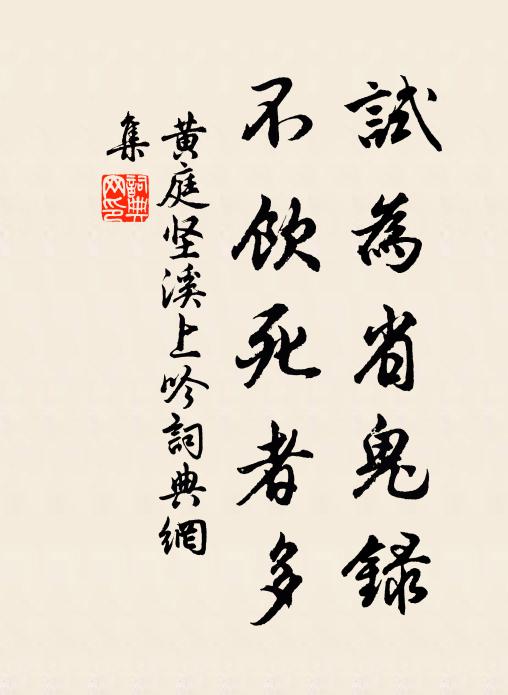 試為省鬼録
不飲死者多
黄庭坚溪上吟詞典網
集
詞典網印